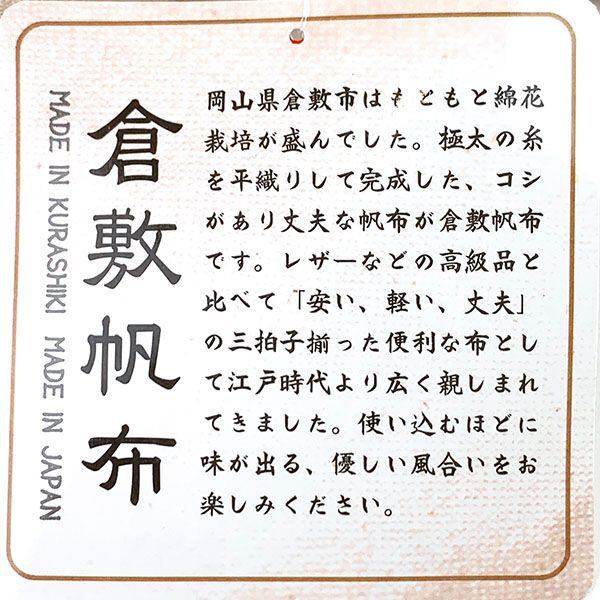 MADE IN KURASHIKI MADE IN JAPAN
倉敷帆布
岡山県倉敷市はもともと綿花
栽培が盛んでした。極太の糸
を平織りして完成した、コシ
があり丈夫な帆布が倉敷帆布
です。レザーなどの高級品と
比べて「安い、軽い、丈夫」
の三拍子揃った便利な布とし
て江戸時代より広く親しまれ
てきました。使い込むほどに
味が出る、優しい風合いをお
楽しみください。